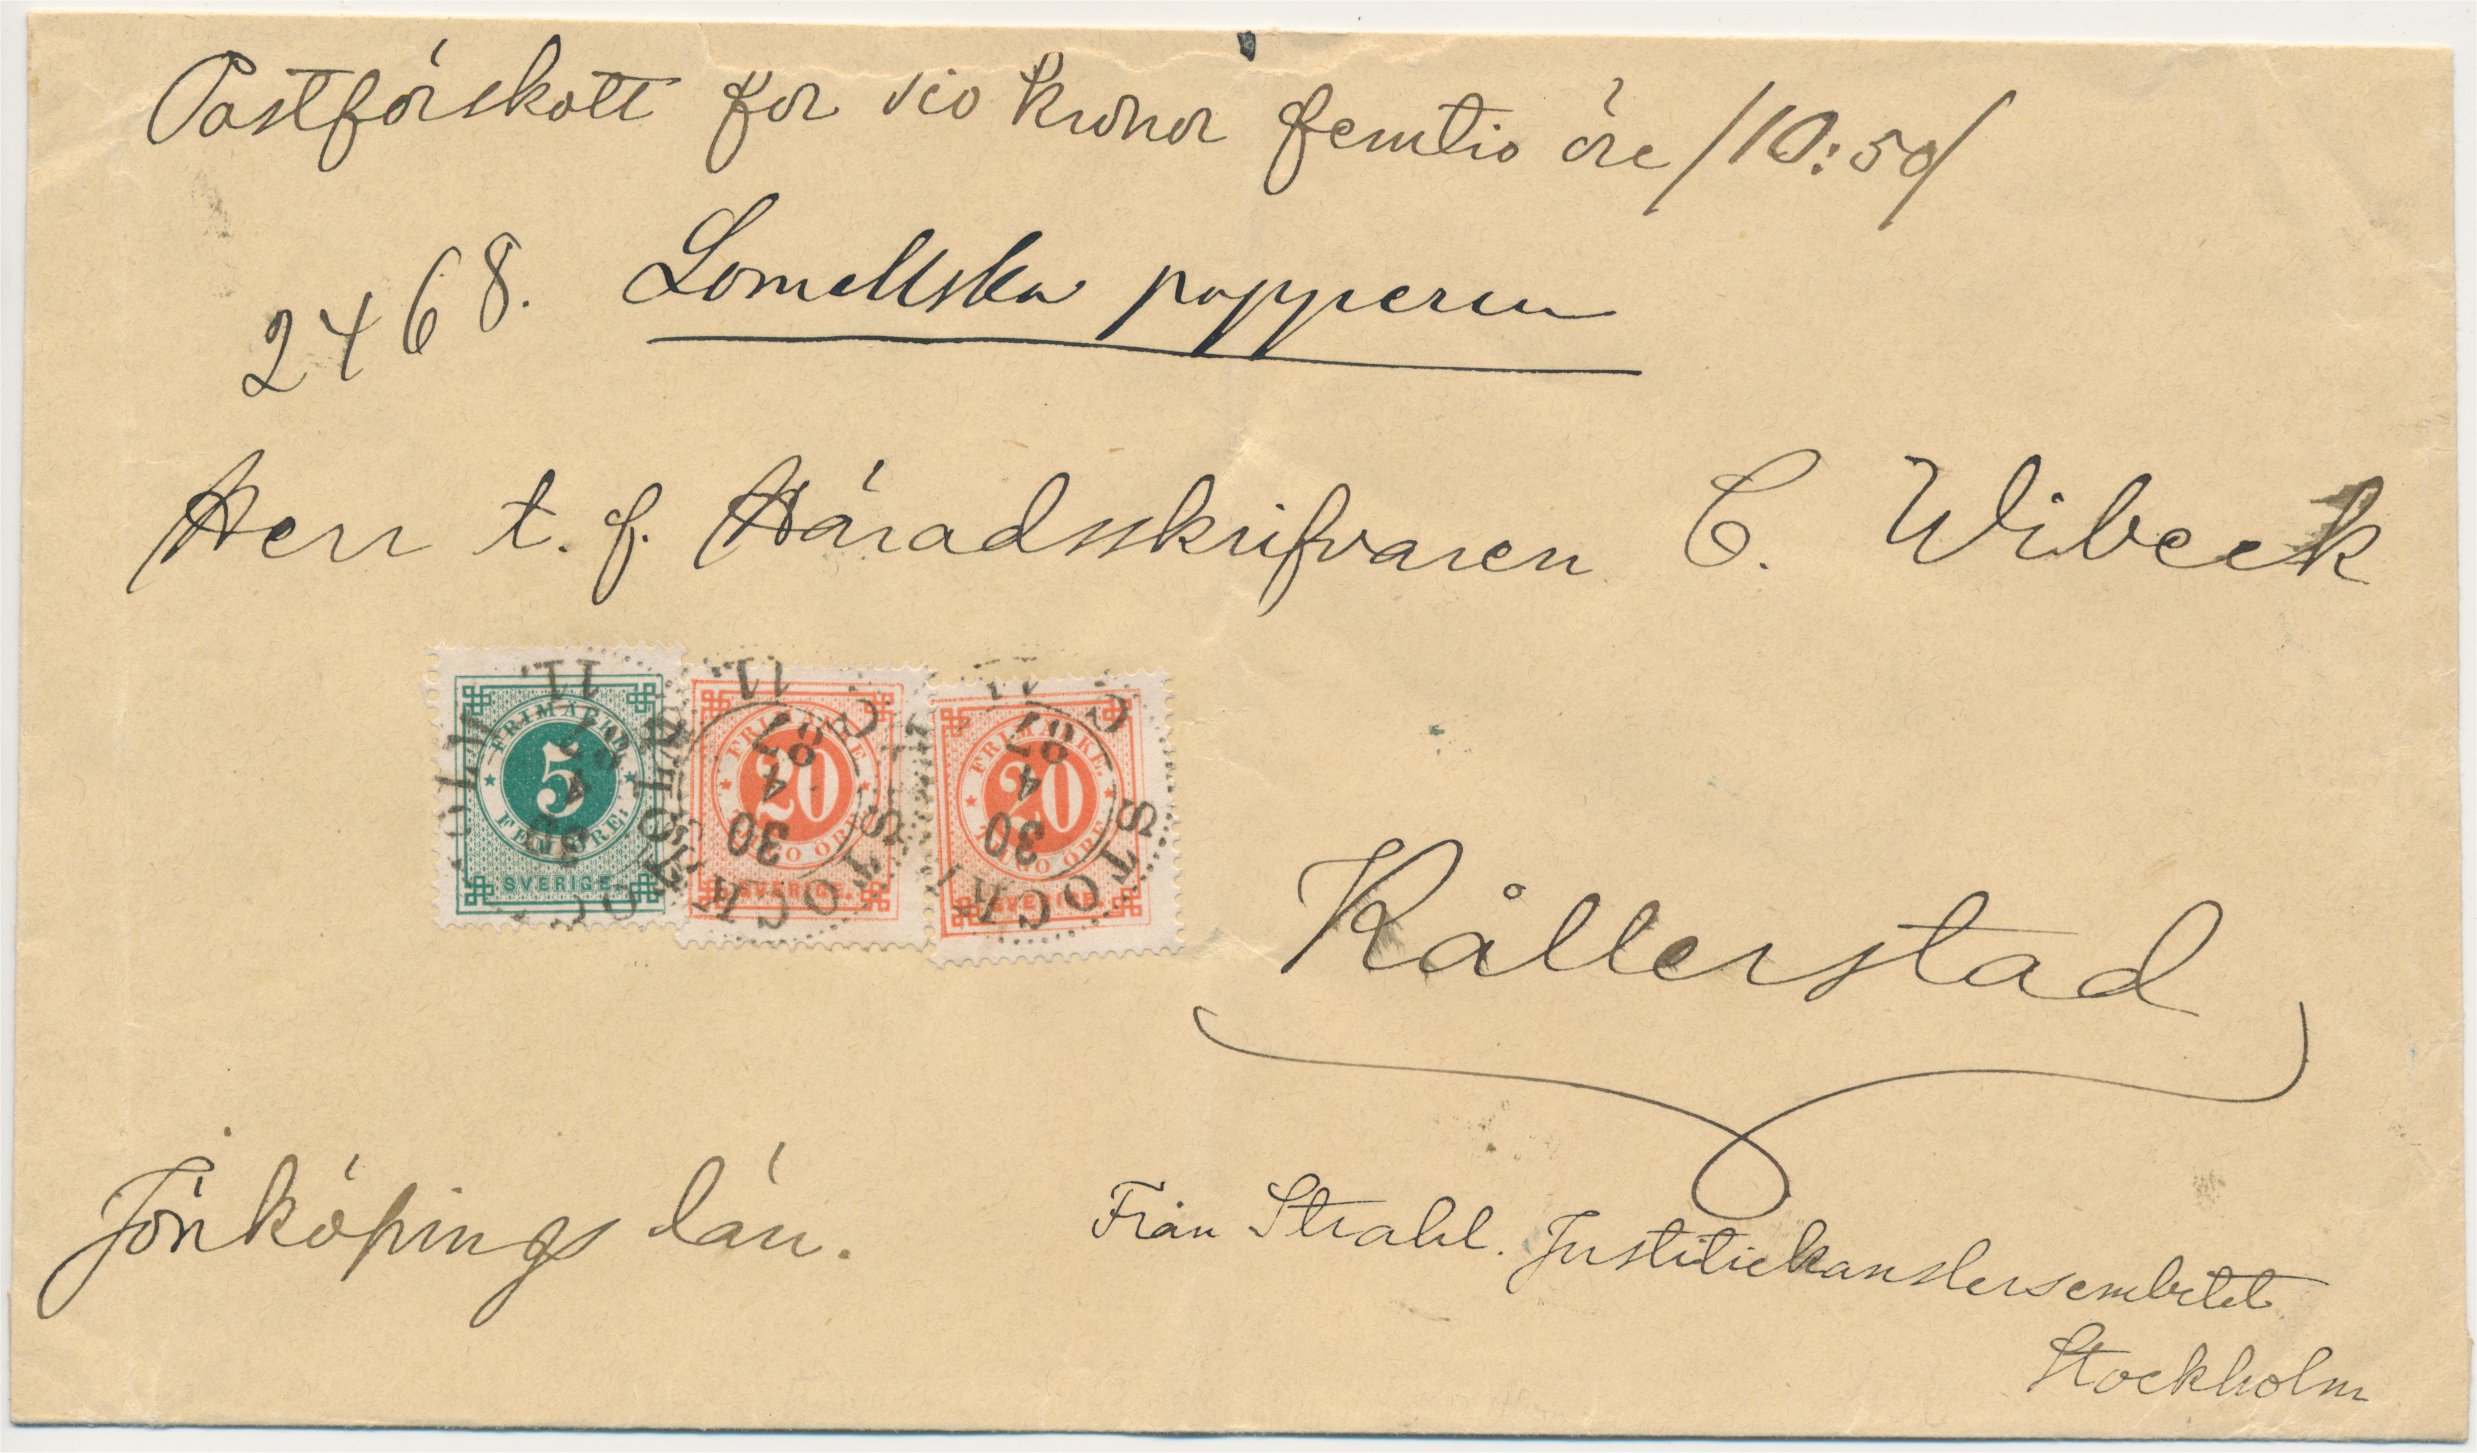 Postförskott för tio kronor femtio öre /10:50/
2468. Lomellska papperen
Herr t. f. Häradsskrifvaren C. Wibeck
FRIMÄRKE. 5 FEM ÖRE. SVERIGE.
FRIMÄRKE 20 TJUGO ÖRE SVERIGE.
FRIMÄRKE. 20 TJUGO ÖRE SVERIGE.
STOCKHOLM 11 87 4 30
STOCKHOLM 11 87 4 30
STOCK 11 87 4 30
Kållerstad
Jönköpings län.
Från Strahl. Justitiekanslersembetet
Stockholm